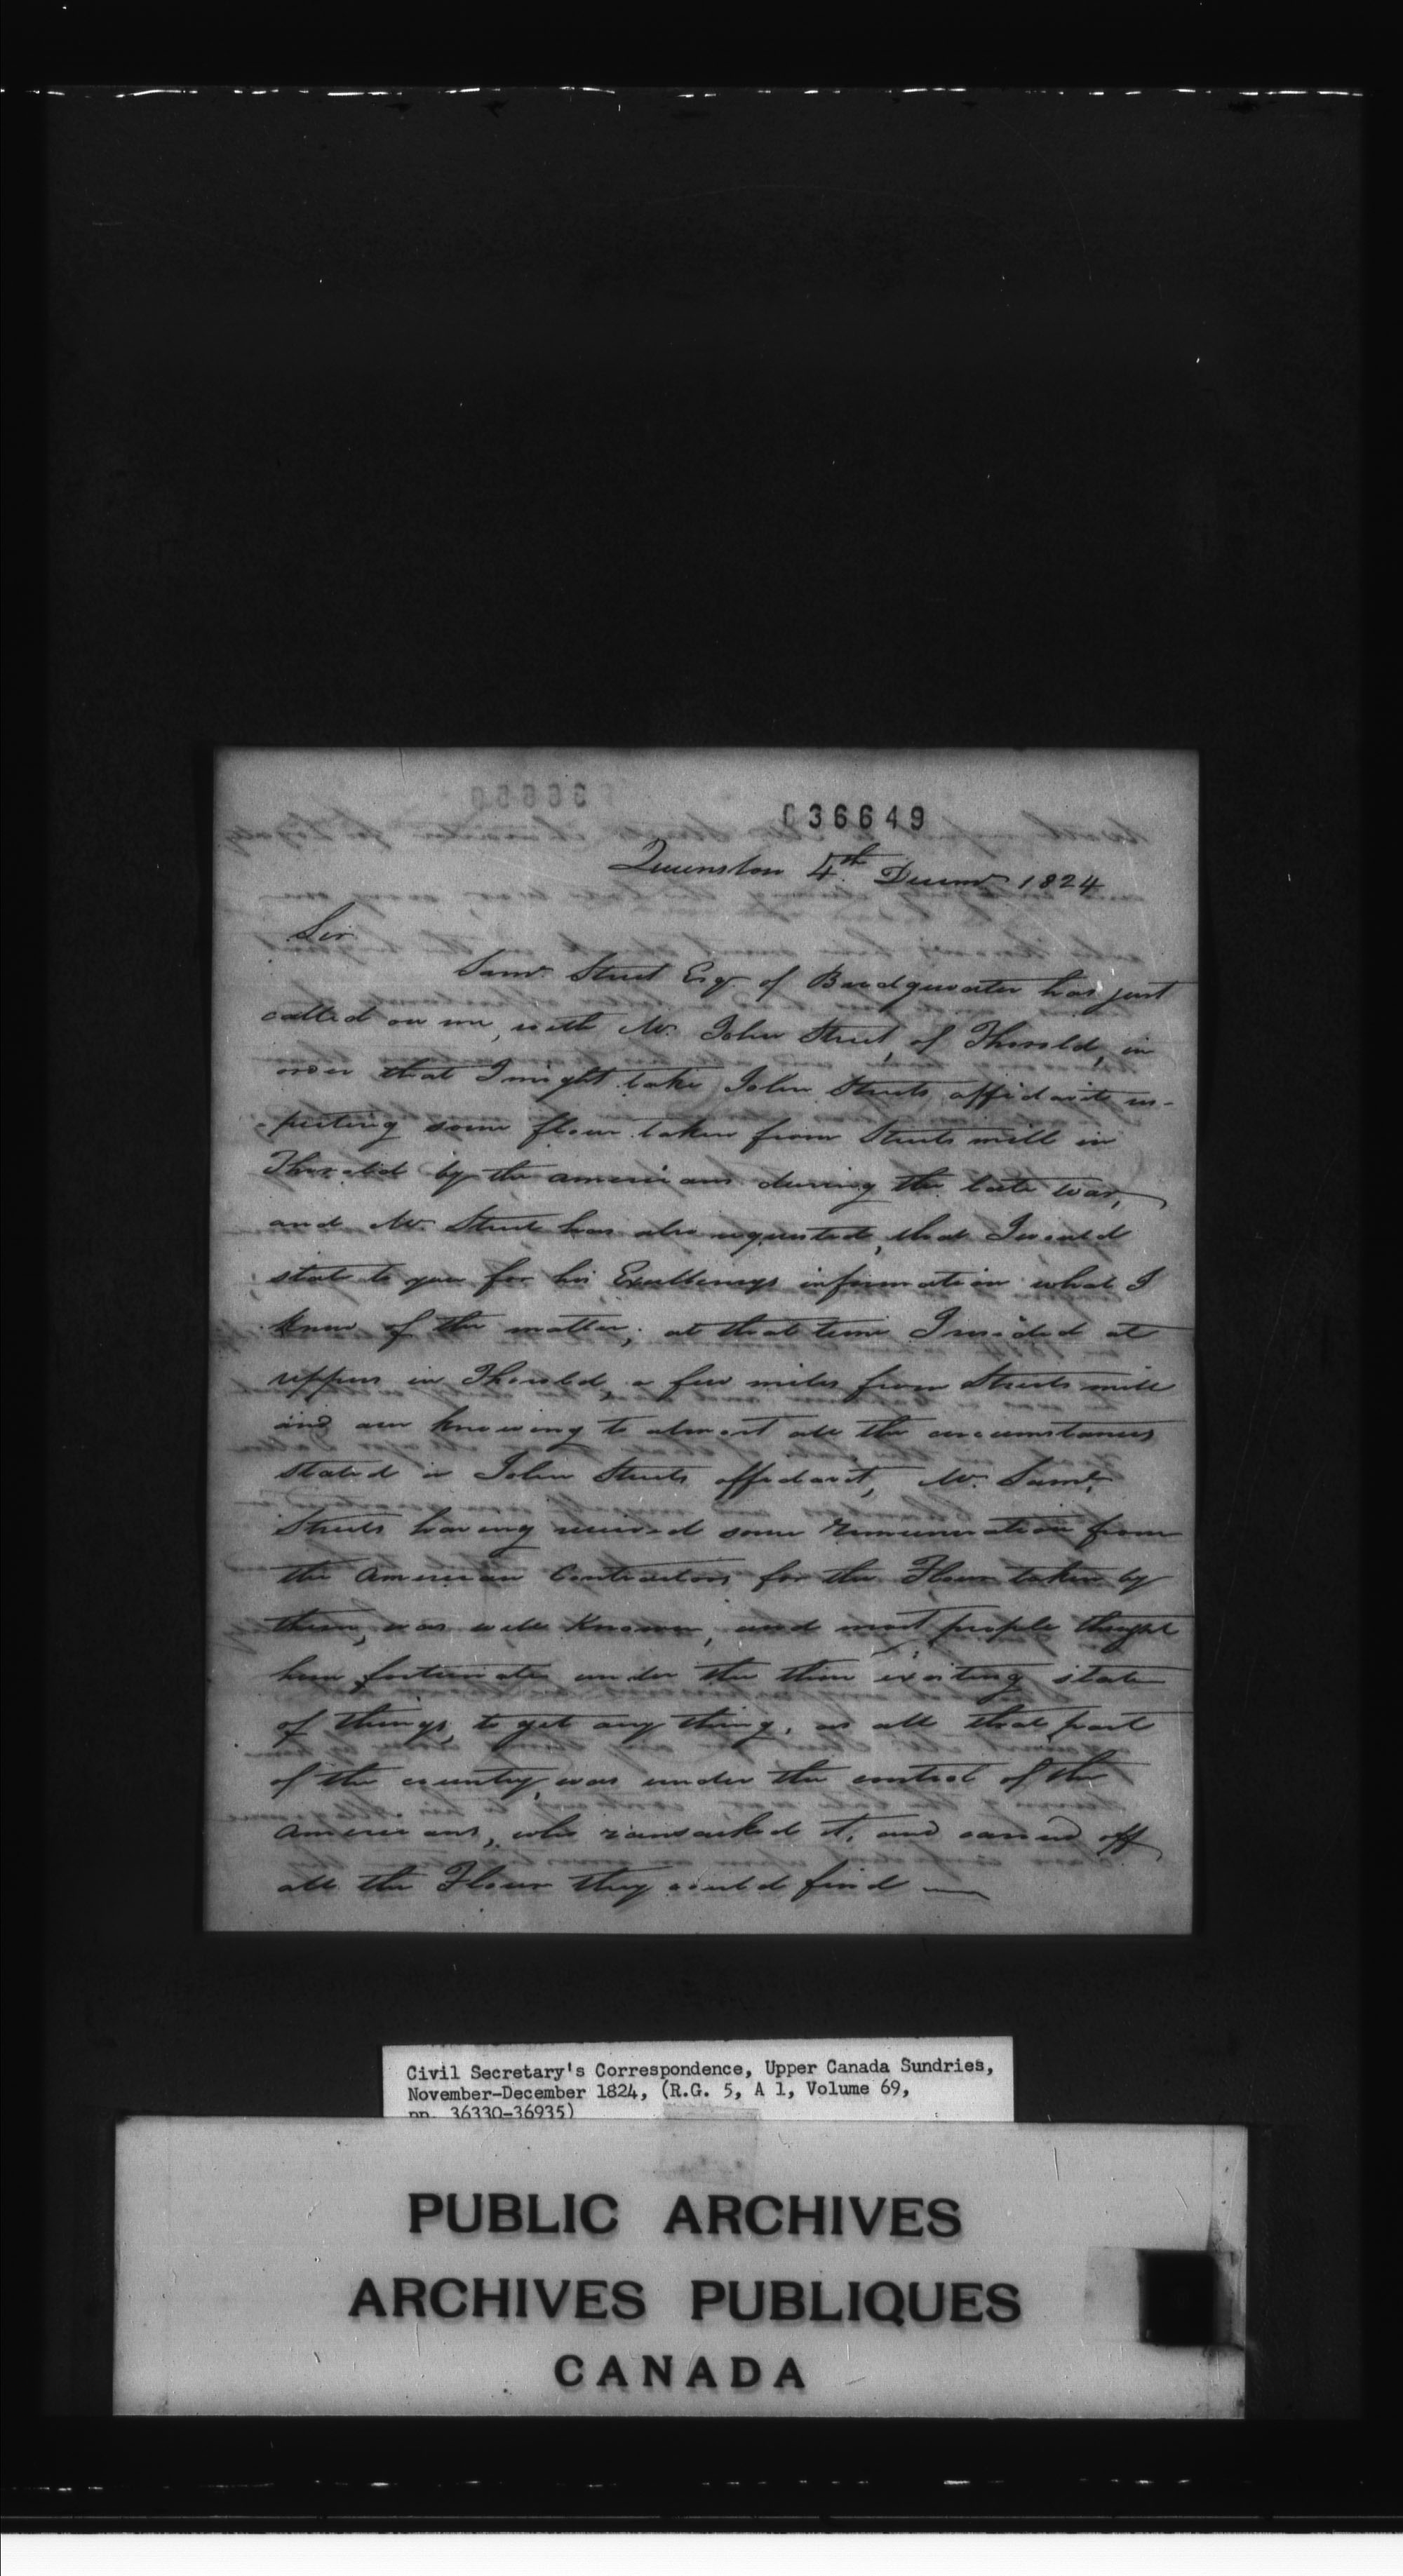 036649
Queenston 4th Decemr 1824
Sir
Saml. Street Esqr. of Bridgewater has just
called on me, with Mr. John Street, of Thorold, in
order that I might take John Streets affidavit res-
pecting some flour taken from Streets mill in
Thorold by the americans during the late war,
and Mr. Street has also requested, that I would
state to you for his Excellencys information what I
knew of the matter; at that time I resided at
in Thorold, a few miles from Streets mill
and am knowing to almost all the circumstances
stated in John Streets affidavit, Mr. Saml.
Streets having received some remuneration from
the American Contractors for the Flour taken by
them, was well known, and most people thought
him fortunate under the then existing state
of things, to get any thing, as all that part
of the country, was under the control of the
Americans, who ransacked it, and carried off
all the Flour they could find —
Civil Secretary's Correspondence, Upper Canada Sundries,
November-December 1824, (R.G. 5, A 1, Volume 69,
pp. 36330-36935)
PUBLIC ARCHIVES
ARCHIVES PUBLIQUES
CANADA